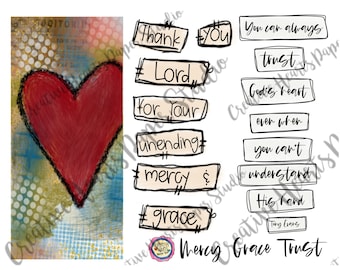 Thank you
Lord
for Your
unending
mercy &
grace
You can always
trust
God's heart
even when
you can't
understand
His hand
Tony Evans
Mercy Grace Trust